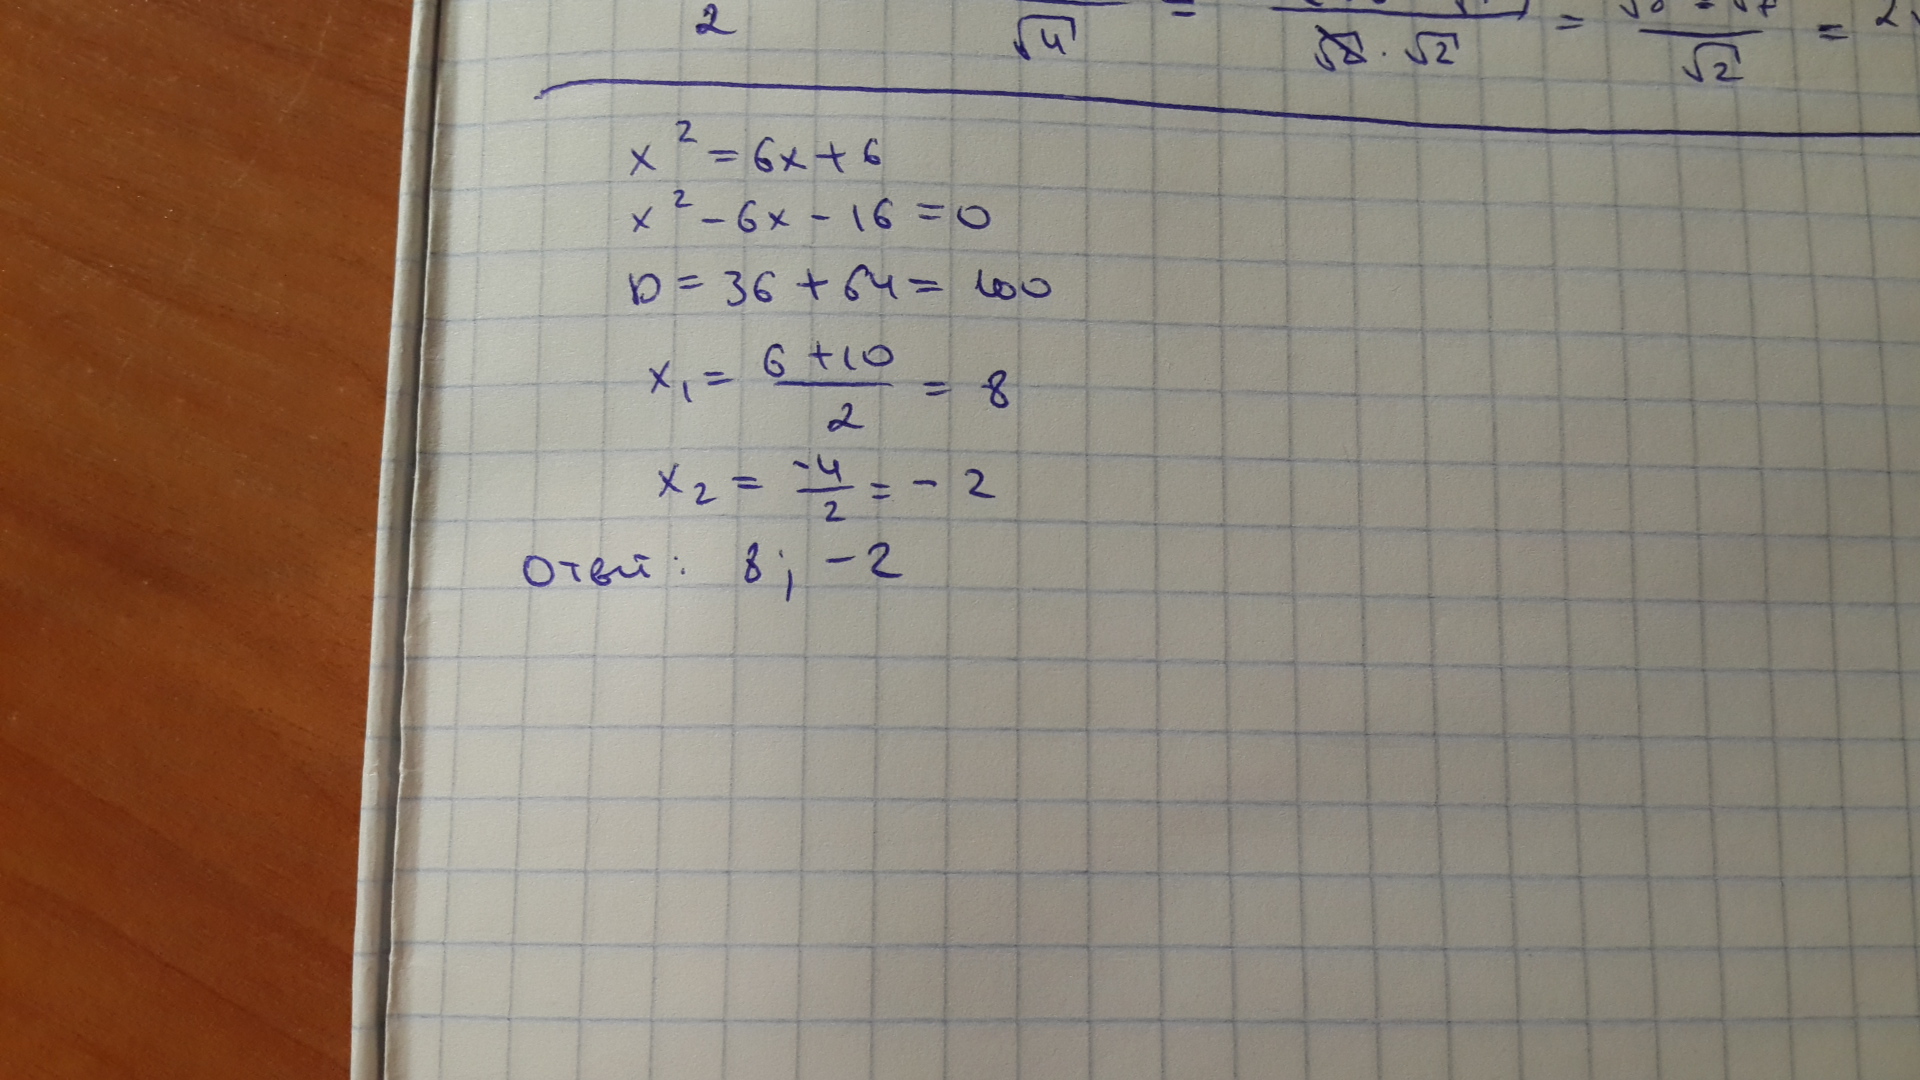 2 √4 = √2 · √2 = √2 = 2
x² = 6x + 6
x² - 6x - 16 = 0
D = 36 + 64 = 100
x₁ = (6 + 10)/2 = 8
x₂ = -4/2 = - 2
Ответ: 8; -2